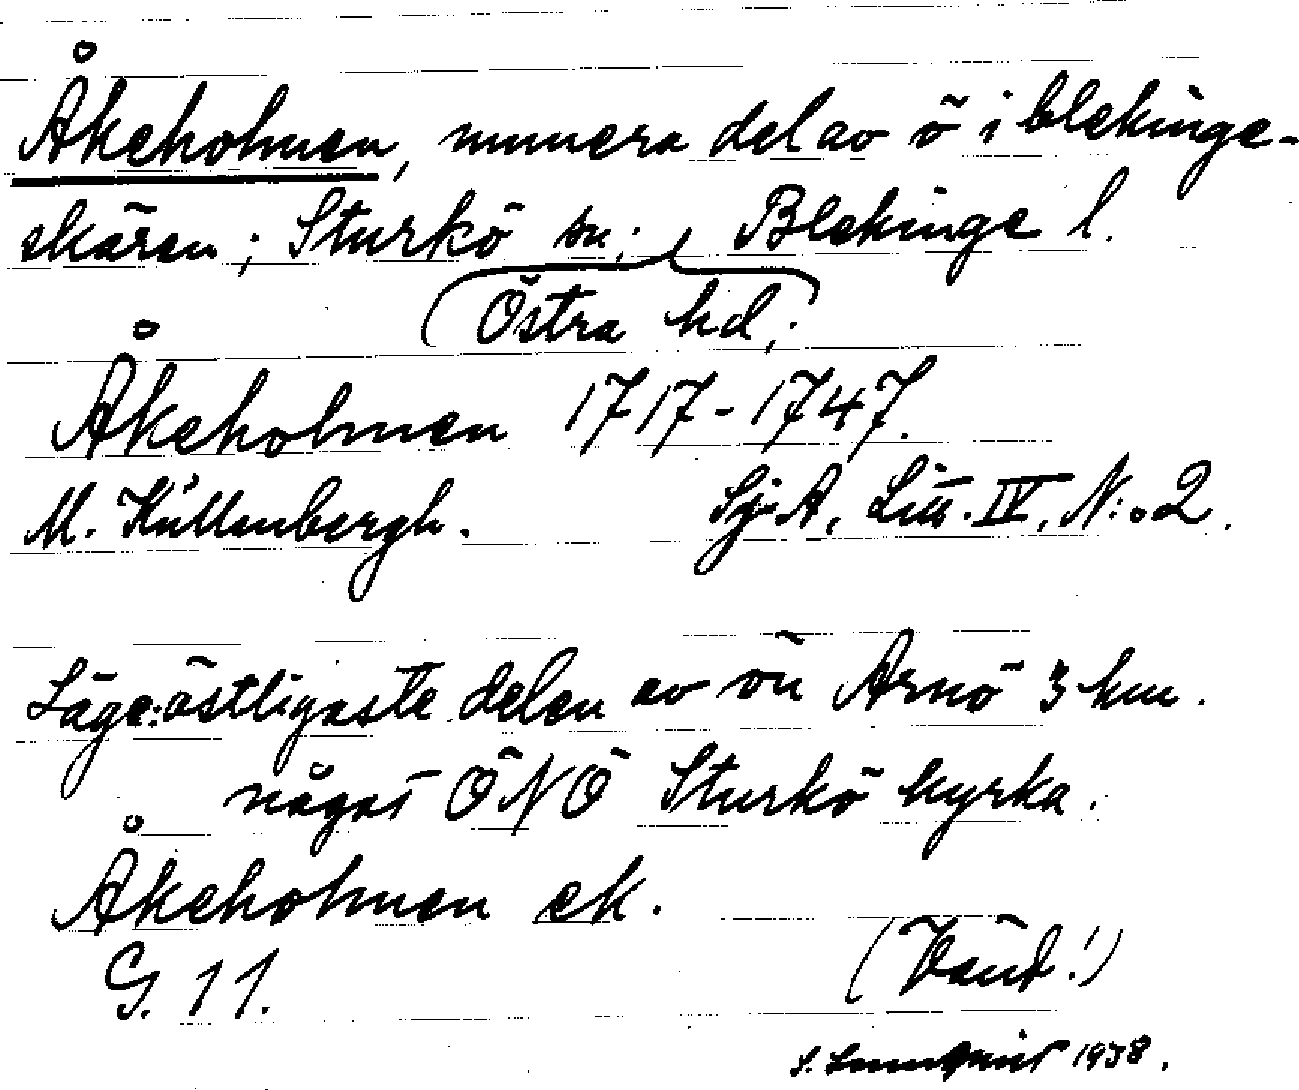 Åkeholmen, numera del av ö i blekinge-
skären; Sturkö sn; Blekinge l.
(Östra hd;)
Åkeholmen 1717-1747.
M. Källenbergh. SjA, Litt. IV, N:o 2.
Läge: östligaste delen av ön Arnö 3 km.
något ÖNÖ Sturkö kyrka.
Åkeholmen ek.
G. 11.
(Vänd!)
S. 1938.